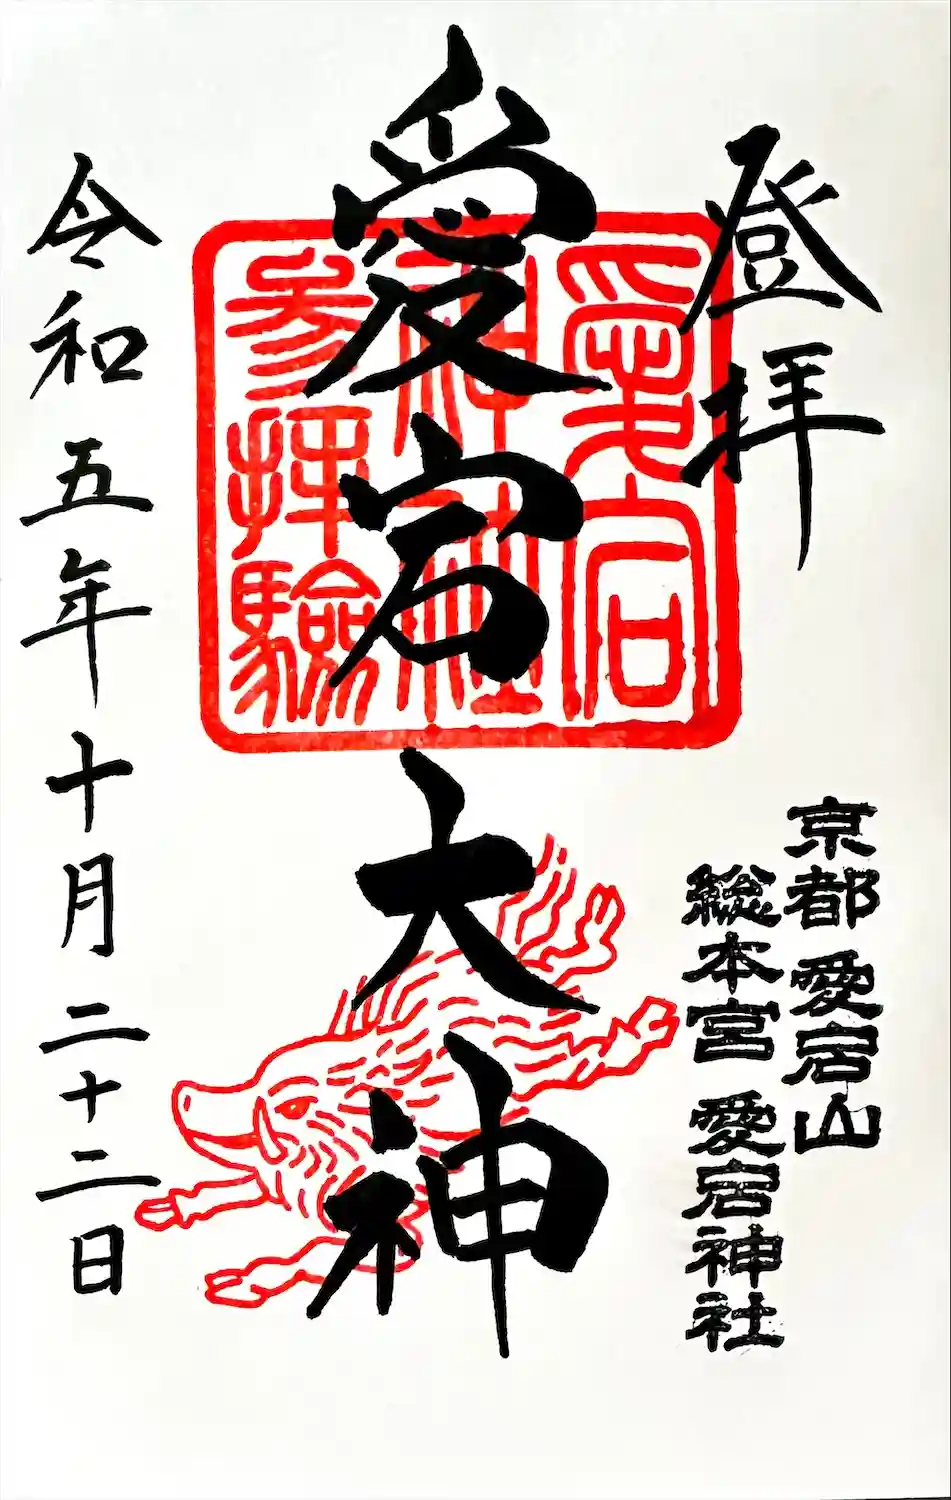 登拝
京都 愛宕山
総本宮 愛宕神社
愛宕大神
愛宕
神社
参拝験
令和五年十月二十二日